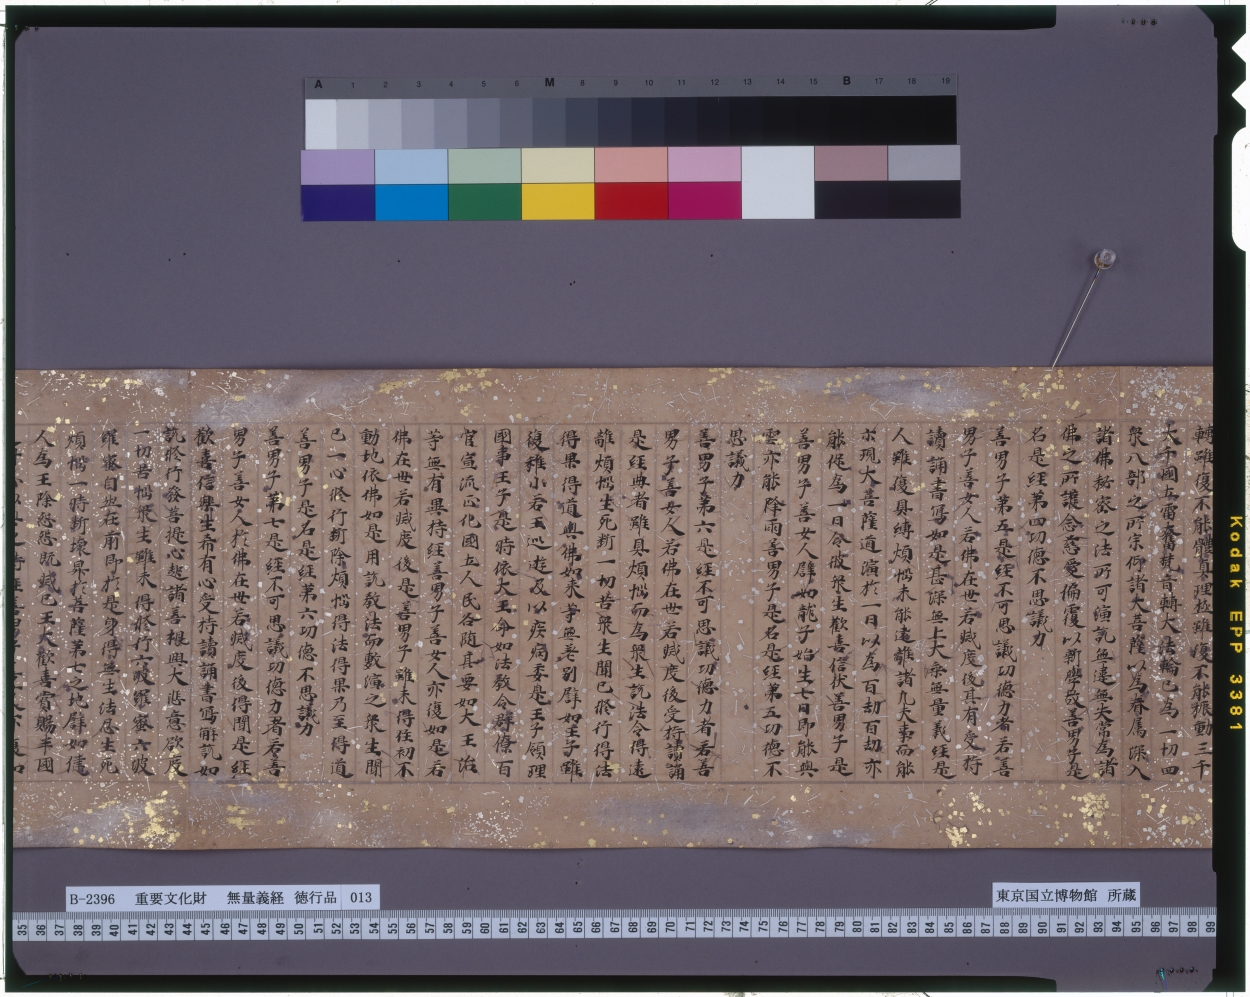 A 1 2 3 4 5 6 M 8 9 10 11 12 13 14 15 B 17 18 19
轉雖復不能體真理極雖復不能振動三千
大千國土雷奮梵音轉大法輪已為一切四
衆八部之所宗仰諸大菩薩以為眷属深入
諸佛秘密之法所可演說無違無失常為諸
佛之所護念慈愛偏覆以新學故善男子是
名是經第四功德不思議力
善男子第五是經不可思議功德力者若善
男子善女人若佛在世若滅度後其有受持
讀誦書寫如是甚深無上大乘無量義經是
人雖復具縛煩惱未能遠離諸凡夫事而能
示現大菩薩道演於一日以為百劫百劫亦
能促為一日令彼衆生歡喜信伏善男子是
善男子善女人譬如龍子始生七日即能興
雲亦能降雨善男子是名是經第五功德不
思議力
善男子第六是經不可思議功德力者若善
男子善女人若佛在世若滅度後受持讀誦
是經典者雖具煩惱而為衆生說法令得遠
離煩惱生死斷一切苦衆生聞已修行得法
得果得道與佛如來等無差別譬如王子雖
復稚小若王巡遊及以疾病委是王子領理
國事王子是時依大王命如法教令群僚百
官宣流正化國土人民各随其要如大王治
等無有異持經善男子善女人亦復如是若
佛在世若滅度後是善男子雖未得住初不
動地依佛如是用說教法而敷演之衆生聞
已一心修行斷除煩惱得法得果乃至得道
善男子是名是經第六功德不思議力
善男子第七是經不可思議功德力者若善
男子善女人於佛在世若滅度後得聞是經
歡喜信樂生希有心受持讀誦書寫解說如
說修行發菩提心起諸善根興大悲意欲度
一切苦惱衆生雖未得修行六波羅蜜六波
羅蜜自然在前即於是身得無生法忍生死
煩惱一時斷壞昇於菩薩第七之地譬如健
人為王除怨怨既滅已王大歡喜賞賜半國
B-2396 重要文化財 無量義経 徳行品 013
東京国立博物館 所蔵
35 36 37 38 39 40 41 42 43 44 45 46 47 48 49 50 51 52 53 54 55 56 57 58 59 60 61 62 63 64 65 66 67 68 69 70 71 72 73 74 75 76 77 78 79 80 81 82 83 84 85 86 87 88 89 90 91 92 93 94 95 96 97 98 99
Kodak EPP 3381